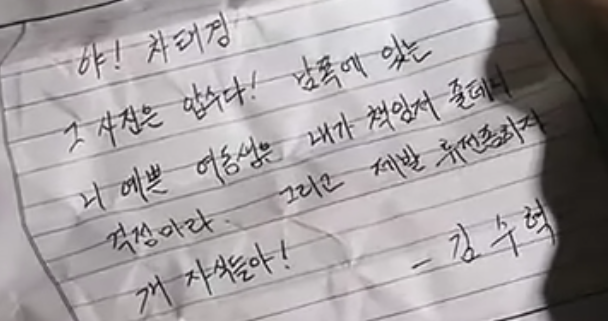 야! 차태경
그 사진은 압수다! 남쪽에 있는
니 예쁜 여동생은 내가 책임져 줄테니
걱정마라. 그리고 제발 휴전좀하자
개 자식들아!
- 김수혁